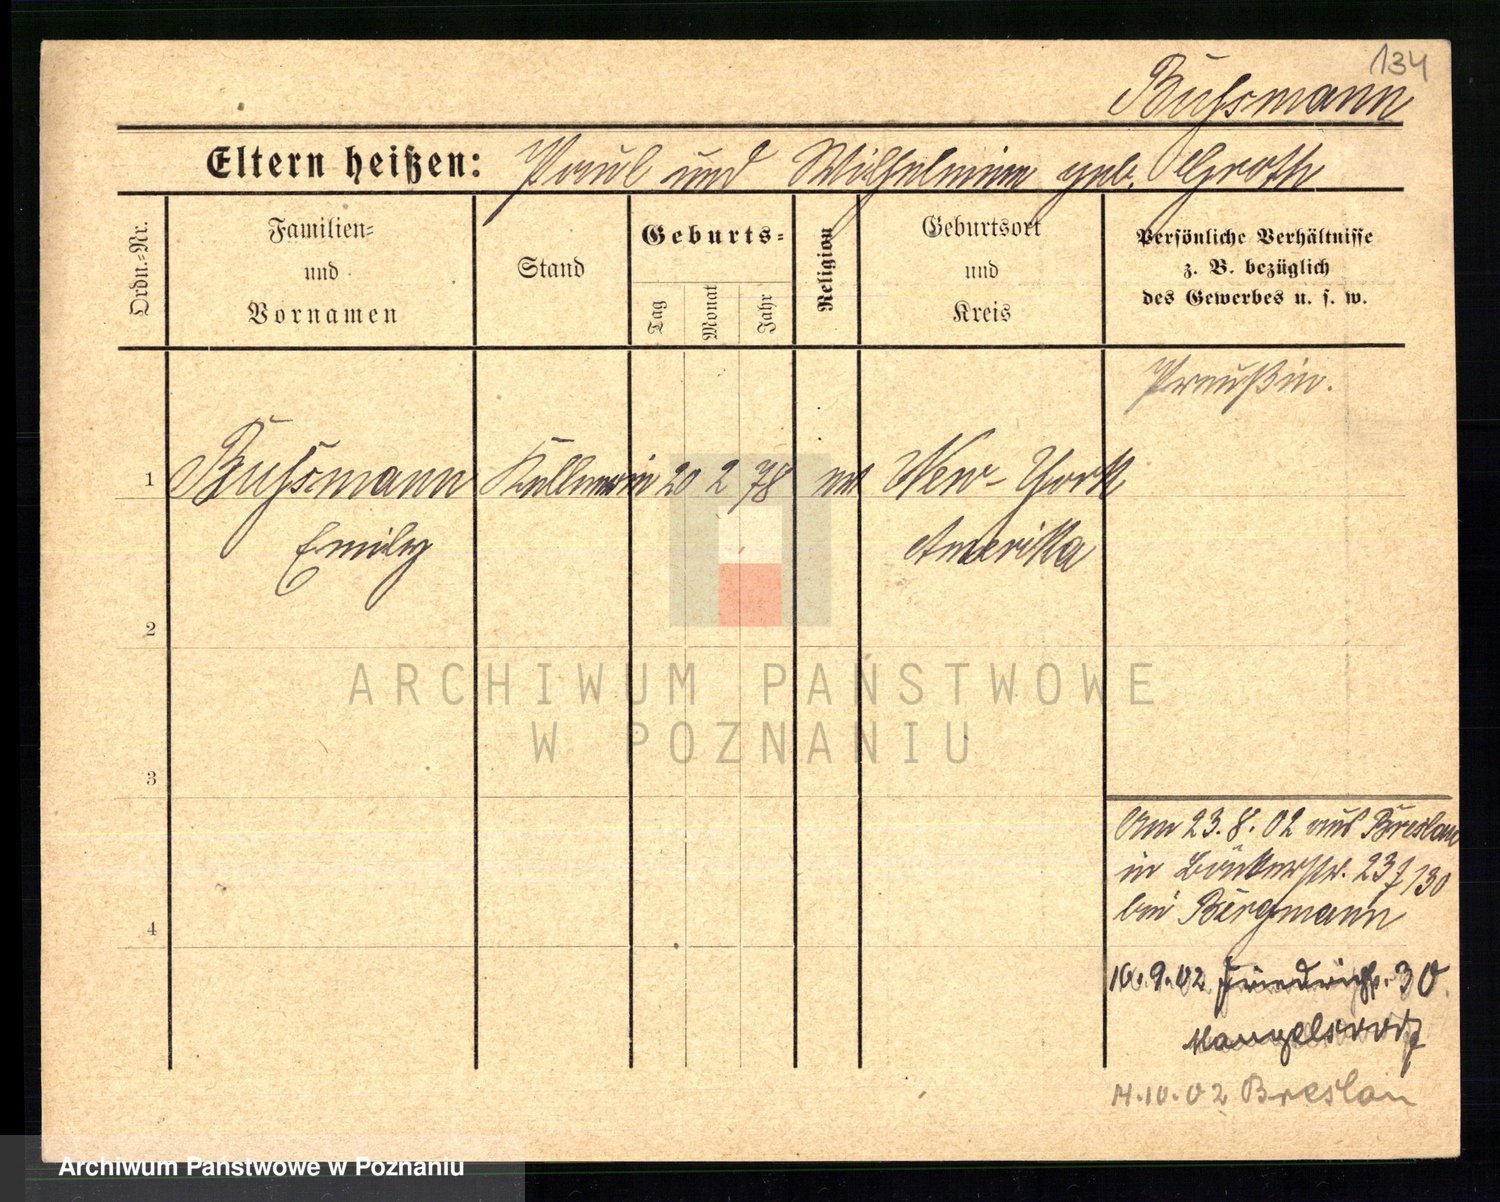 134
Bußmann
Eltern heißen: Paul und Wilhelmine geb. Groth
Ordn.-Nr.
Familien-
und
Vornamen
Stand
Geburts-
Tag
Monat
Jahr
Religion
Geburtsort
und
Kreis
Persönliche Verhältnisse
z. B. bezüglich
des Gewerbes u. s. w.
Preußin.
1 Bußmann Kellnerin 20 2 78 ev New-York
Emily Amerika
2
3
4
Am 23.8.02 aus Breslau
in Bäckerstr. 23 130
bei Bergmann
10.9.02 Friedrichstr. 30.
Mangelsdorf
.10.02 Breslau
ARCHIWUM PAŃSTWOWE
W POZNANIU
Archiwum Państwowe w Poznaniu